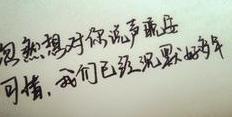 忽然想对你说声晚安
可惜,我们已经沉默好多年